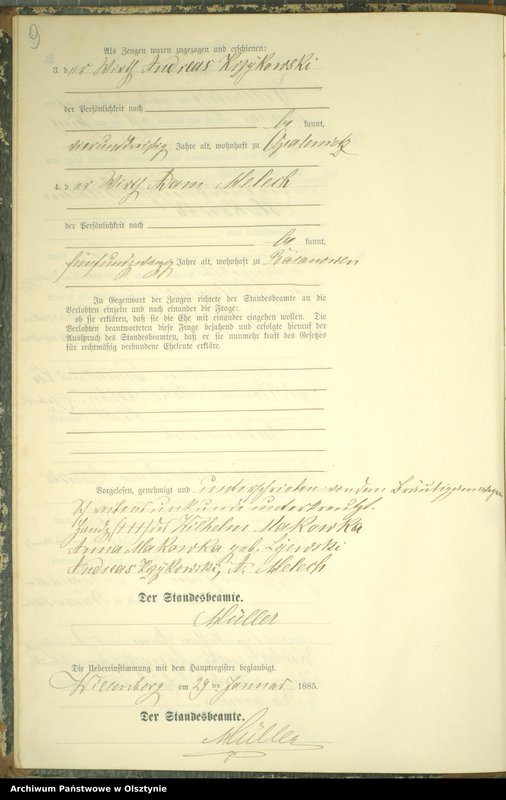 9
Als Zeugen waren zugezogen und erschienen:
3. der Wirth Andreas Krzykowski
der Persönlichkeit nach
be kannt,
vierunddreißig Jahre alt, wohnhaft zu Opalenietz
4. der Wirth Adam Melech
der Persönlichkeit nach
be kannt,
fünfundzwanzig Jahre alt, wohnhaft zu Baranowen
In Gegenwart der Zeugen richtete der Standesbeamte an die
Verlobten einzeln und nach einander die Frage:
ob sie erklären, daß sie die Ehe mit einander eingehen wollen. Die
Verlobten beantworteten diese Frage bejahend und erfolgte hierauf der
Ausspruch des Standesbeamten, daß er sie nunmehr kraft des Gesetzes
für rechtmäßig verbundene Eheleute erkläre.
Vorgelesen, genehmigt und unterschrieben von dem Bräutigam wegen
Schreibensunkunde unterkreuzt.
Handz (+++) des Wilhelm Makowka
Anna Makowka geb.
Andreas Krzykowski, A. Melech
Der Standesbeamte.
Müller
Die Uebereinstimmung mit dem Hauptregister beglaubigt.
Willenberg am 29 ten Januar 1885.
Der Standesbeamte.
Müller
Archiwum Państwowe w Olsztynie